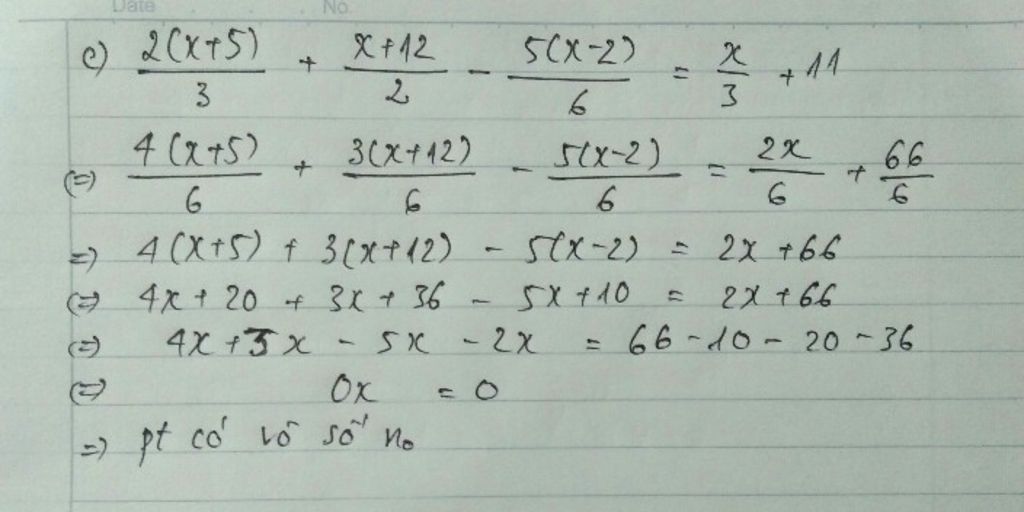 Date No
c) 2(x+5)/3 + x+12/2 - 5(x-2)/6 = x/3 + 11
(=) 4(x+5)/6 + 3(x+12)/6 - 5(x-2)/6 = 2x/6 + 66/6
=) 4(x+5) + 3(x+12) - 5(x-2) = 2x + 66
(=) 4x + 20 + 3x + 36 - 5x + 10 = 2x + 66
(=) 4x + 3x - 5x - 2x = 66 - 10 - 20 - 36
(=) 0x = 0
=) pt có vô số no